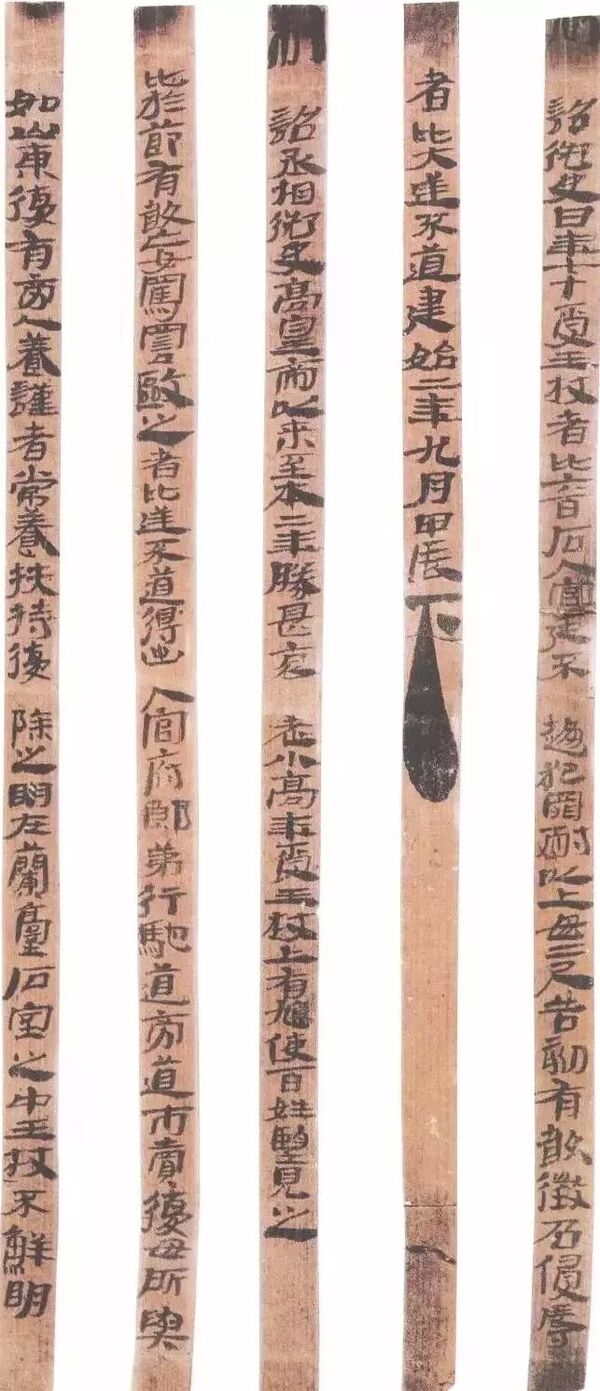 制 詔御史曰年七十受王杖者比六百石入官廷不趨犯罪耐以上毋二尺告劾有敢徵召侵辱
者比大逆不道建始二年九月甲辰下
制 詔丞相御史高皇帝以來至本二年勝甚哀老小高年受王杖上有鳩使百姓望見之
比於節有敢妄罵詈毆之者比逆不道得出入官府郎第行馳道旁道市賣復毋所與
如山東復有旁人養謹者常養扶持復除之明在蘭臺石室之中王杖不鮮明